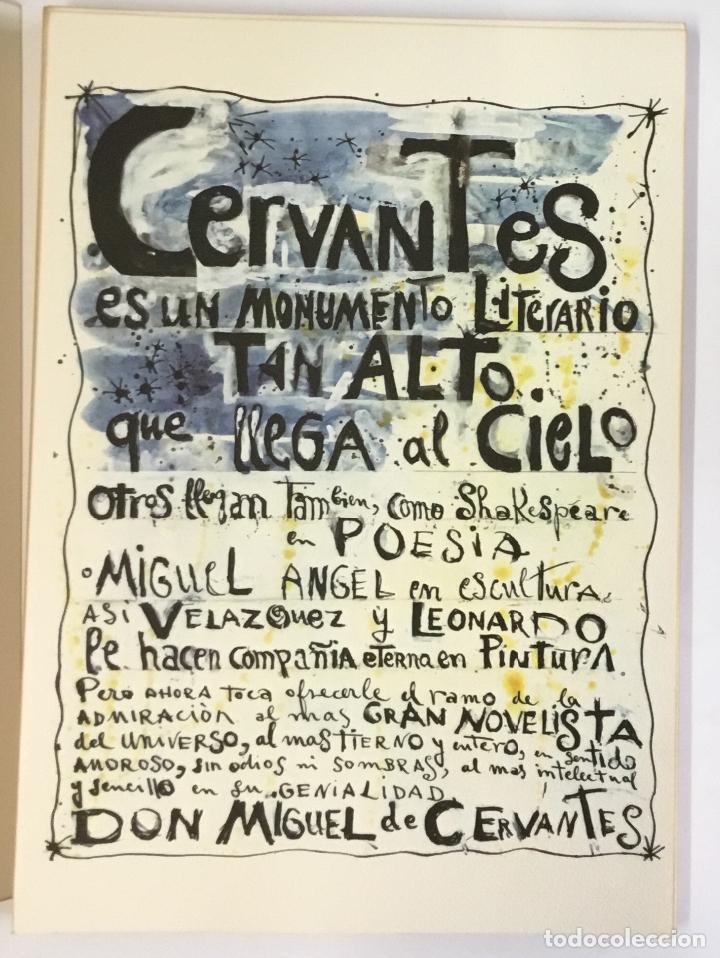 CervanTes
es un MONUMENTO LiTerario
TAN ALTO
que llega al Cielo
otros llegan Tambien, como Shakespeare
en POESIA
o MIGUEL ANGEL en escultura
ASI VELAZQuez y LEONARDO
le hacen compañia eterna en PINTURA
Pero AHORA Toca ofrecerle el ramo de la
ADMIRACIÒN al mas GRAN NOVELISTA
del UNIVERSO, al mas TIERNO y entero, en sentido
AMOROSO, sin odios ni SOMBRAS, al mas intelectual
y sencillo en su GENIALIDAD
DON MIGUEL de CERVANTES
todocoleccion